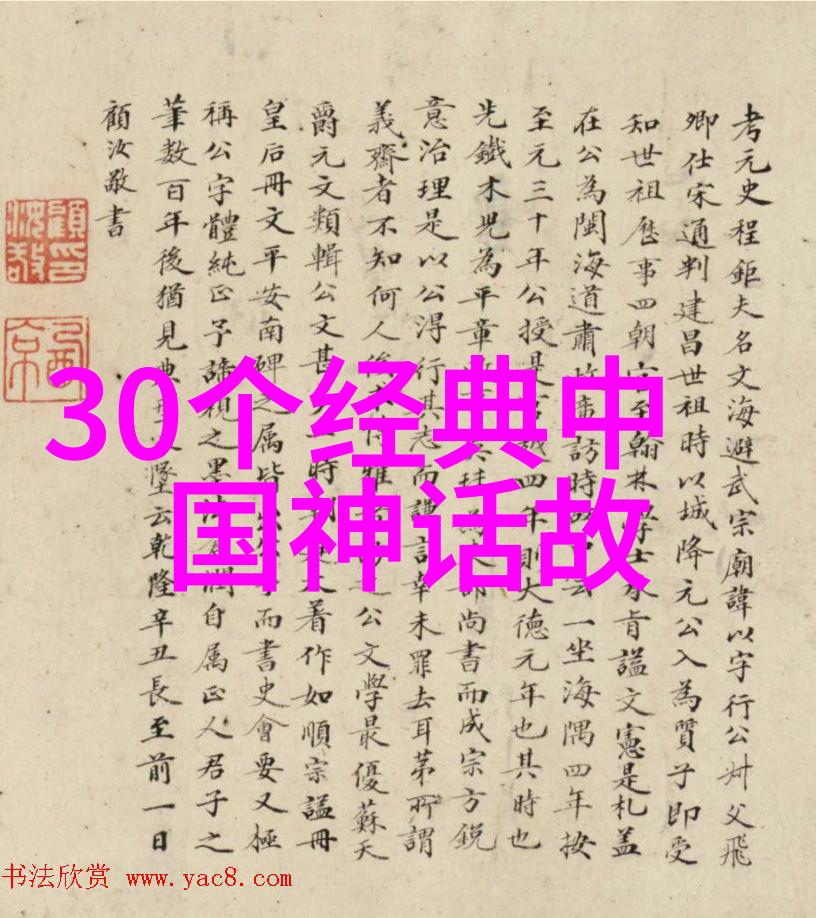 30个经典中
国神话故
考元史程鉅夫名文海避武宗廟諱以字行公叔父飛
卿仕宋通判建昌世祖時以城降元公入為質子即受
知世祖歷事四朝官至翰林學士承旨諡文憲是札蓋
在公為閩海道肅訪時云一坐海隅四年按
至元三十年公授是四年則大德元年也其時也
先鐵木兒為平章尚書而成宗方銳
意治理是以公得行其志而讜言辛未罪去耳第所謂
義齋者不知何人公文學最優蘇天
爵元文類輯公文甚時著作如順宗諡冊
皇后冊文平安南碑之属皆而書史會要又極
稱公字體純正予諦視之墨潤自属正人君子之
筆數百年後猶見典型云乾隆辛丑長至前一日
顧汝敬書
書法欣赏 www.yac8.com